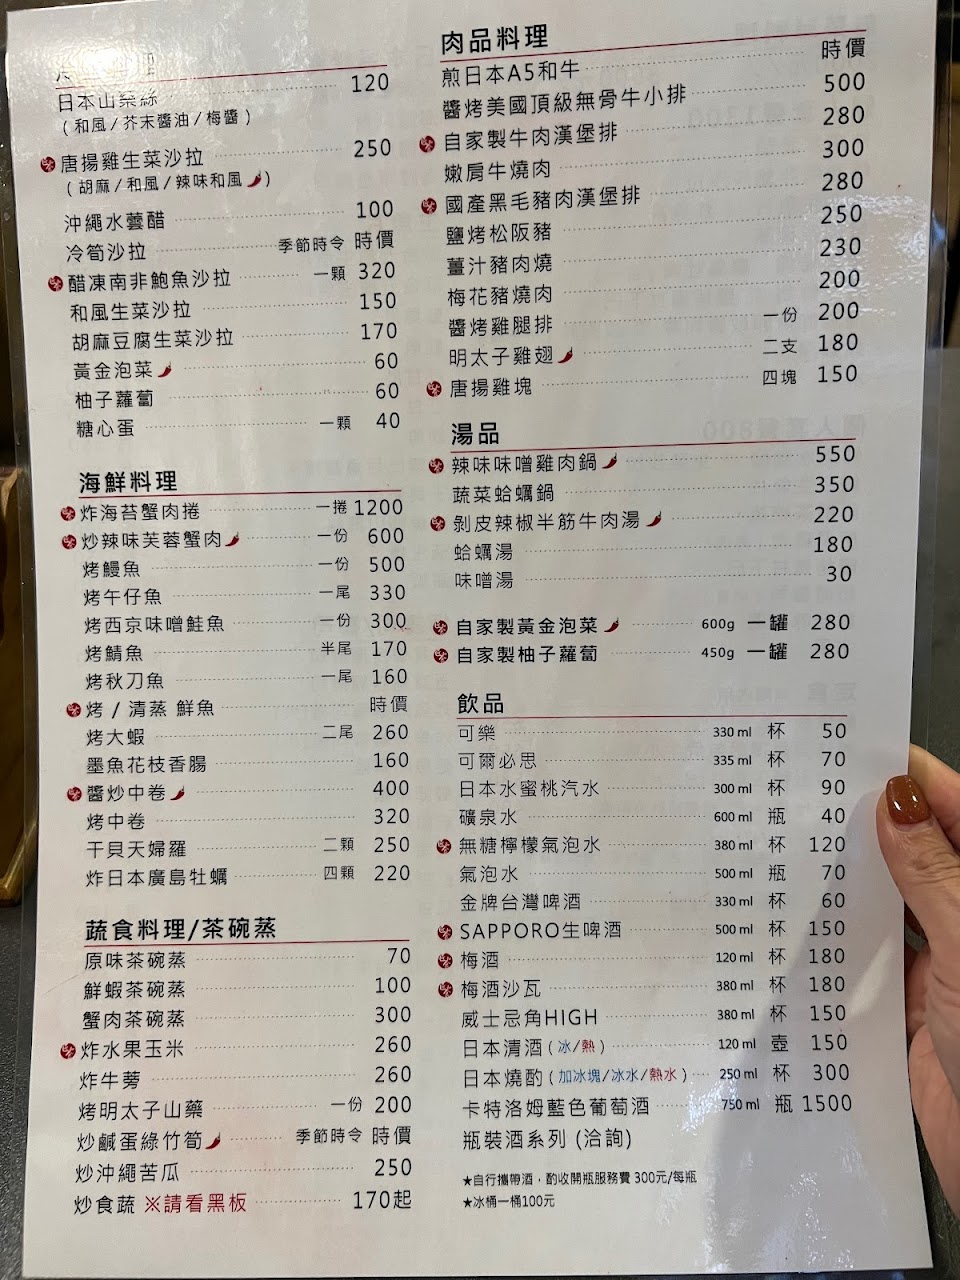 日本山藥絲 120
(和風/芥末醬油/梅醬)
唐揚雞生菜沙拉 250
(胡麻/和風/辣味和風)
沖繩水雲醋 100
冷筍沙拉 季節時令 時價
醋凍南非鮑魚沙拉 一顆 320
和風生菜沙拉 150
胡麻豆腐生菜沙拉 170
黃金泡菜 60
柚子蘿蔔 60
糖心蛋 一顆 40
海鮮料理
炸海苔蟹肉捲 一捲 1200
炒辣味芙蓉蟹肉 一份 600
烤鰻魚 一份 500
烤午仔魚 一尾 330
烤西京味噌鮭魚 一份 300
烤鯖魚 半尾 170
烤秋刀魚 一尾 160
烤 / 清蒸 鮮魚 時價
烤大蝦 二尾 260
墨魚花枝香腸 160
醬炒中卷 400
烤中卷 320
干貝天婦羅 二顆 250
炸日本廣島牡蠣 四顆 220
蔬食料理/茶碗蒸
原味茶碗蒸 70
鮮蝦茶碗蒸 100
蟹肉茶碗蒸 300
炸水果玉米 260
炸牛蒡 260
烤明太子山藥 一份 200
炒鹹蛋綠竹筍 季節時令 時價
炒沖繩苦瓜 250
炒食蔬 ※請看黑板 170起
肉品料理
煎日本A5和牛 時價
醬烤美國頂級無骨牛小排 500
自家製牛肉漢堡排 280
嫩肩牛燒肉 300
國產黑毛豬肉漢堡排 280
鹽烤松阪豬 250
薑汁豬肉燒 230
梅花豬燒肉 200
醬烤雞腿排 一份 200
明太子雞翅 二支 180
唐揚雞塊 四塊 150
湯品
辣味味噌雞肉鍋 550
蔬菜蛤蠣鍋 350
剝皮辣椒半筋牛肉湯 220
蛤蠣湯 180
味噌湯 30
自家製黃金泡菜 600g 一罐 280
自家製柚子蘿蔔 450g 一罐 280
飲品
可樂 330 ml 杯 50
可爾必思 335 ml 杯 70
日本水蜜桃汽水 300 ml 杯 90
礦泉水 600 ml 瓶 40
無糖檸檬氣泡水 380 ml 杯 120
氣泡水 500 ml 瓶 70
金牌台灣啤酒 330 ml 杯 60
SAPPORO生啤酒 500 ml 杯 150
梅酒 120 ml 杯 180
梅酒沙瓦 380 ml 杯 180
威士忌角HIGH 380 ml 杯 150
日本清酒 (冰/熱) 120 ml 壺 150
日本燒酌 (加冰塊/冰水/熱水) 250 ml 杯 300
卡特洛姆藍色葡萄酒 750 ml 瓶 1500
瓶裝酒系列 (洽詢)
★自行攜帶酒，酌收開瓶服務費 300元/每瓶
★冰桶一桶100元